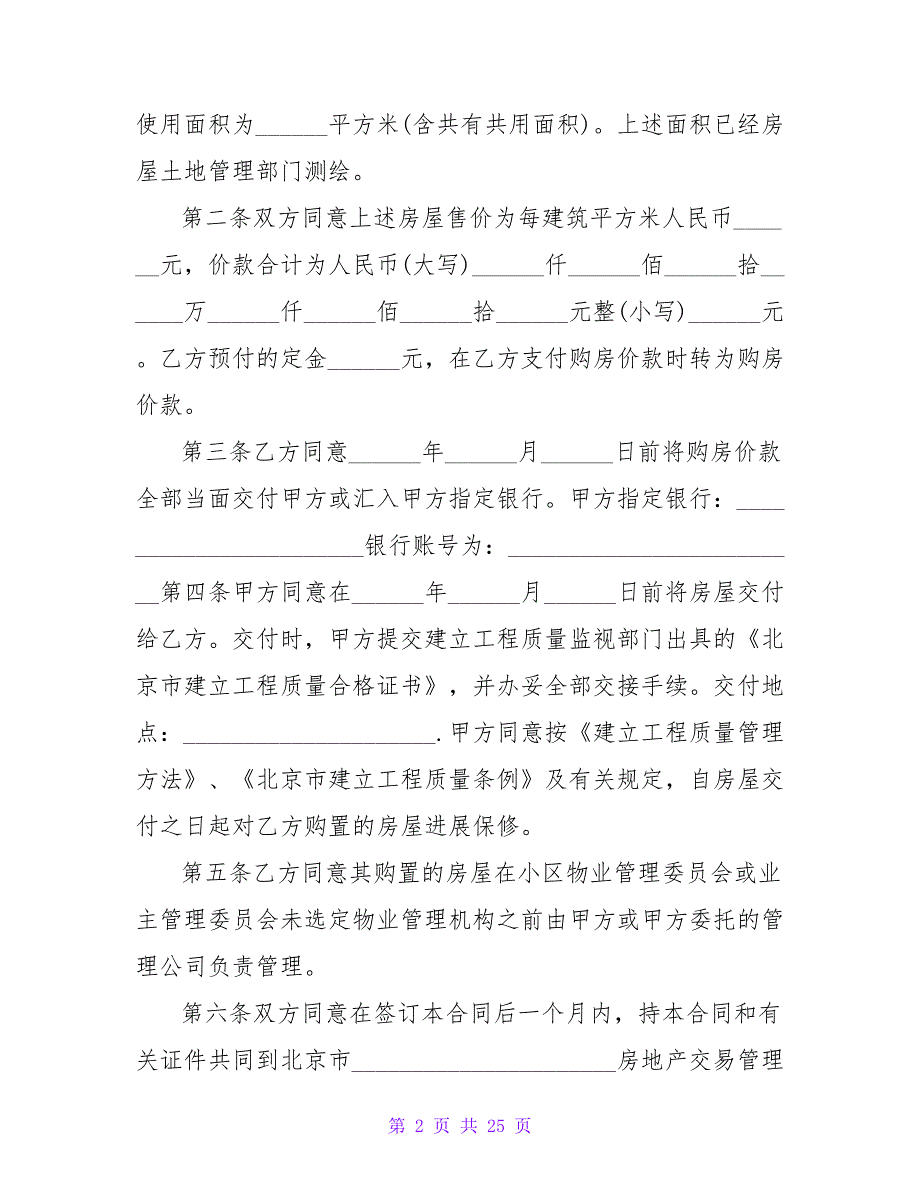 使用面积为______平方米(含共有共用面积)。上述面积已经房
屋土地管理部门测绘。
第二条双方同意上述房屋售价为每建筑平方米人民币____
__元，价款合计为人民币(大写)______仟______佰______拾__
____万______仟______佰______拾______元整(小写)______元
。乙方预付的定金______元，在乙方支付购房价款时转为购房
价款。
第三条乙方同意______年______月______日前将购房价款
全部当面交付甲方或汇入甲方指定银行。甲方指定银行：____
___________________银行账号为：_______________________
__第四条甲方同意在______年______月______日前将房屋交付
给乙方。交付时，甲方提交建立工程质量监视部门出具的《北
京市建立工程质量合格证书》，并办妥全部交接手续。交付地
点：_____________________.甲方同意按《建立工程质量管理
方法》、《北京市建立工程质量条例》及有关规定，自房屋交
付之日起对乙方购置的房屋进展保修。
第五条乙方同意其购置的房屋在小区物业管理委员会或业
主管理委员会未选定物业管理机构之前由甲方或甲方委托的管
理公司负责管理。
第六条双方同意在签订本合同后一个月内，持本合同和有
关证件共同到北京市______________________房地产交易管理
第 2 页 共 25 页